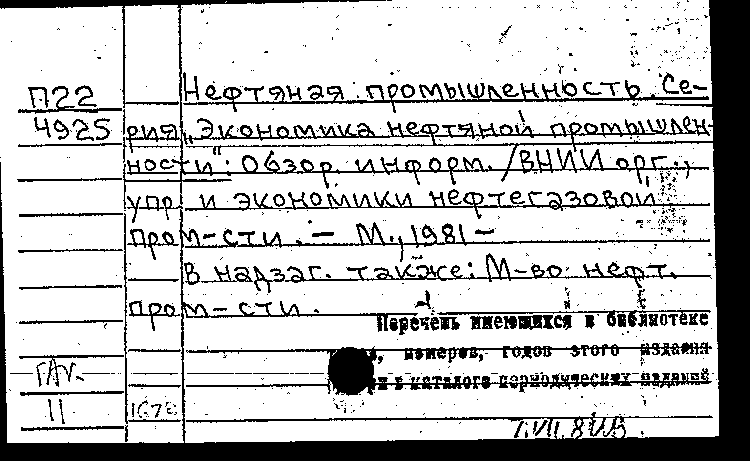 П22
4925
Нефтяная промышленность. Се-
рия „Экономика нефтяной промышлен-
ности": Обзор. информ. /ВНИИ орг.,
упр. и экономики нефтегазовой
пром-сти. — М., 1981 —
В надзаг. также: М-во нефт.
пром-сти.
Перечень имеющихся в библиотеке
номеров, годов этого издания
в каталоге периодических изданий
11